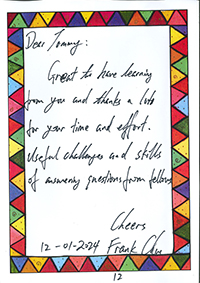 Dear Tommy:
Great to have learning
from you and thanks a lots
for your time and effort.
Useful challenges and skills
of answering questions from fellows
Cheers
12-01-2024 Frank
12